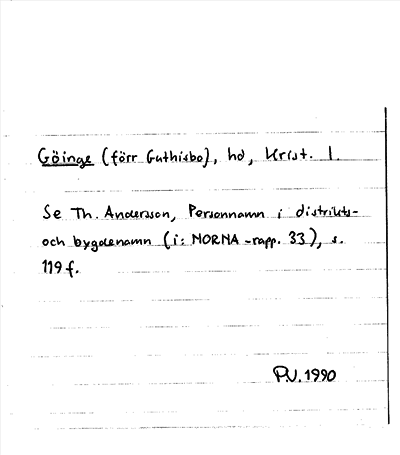 Göinge (förr Guthisbo), hd, Krist. l.
Se Th. Andersson, Personnamn i distrikts-
och bygdenamn (i: NORNA-rapp. 33), s.
119 f.
P.V. 1990